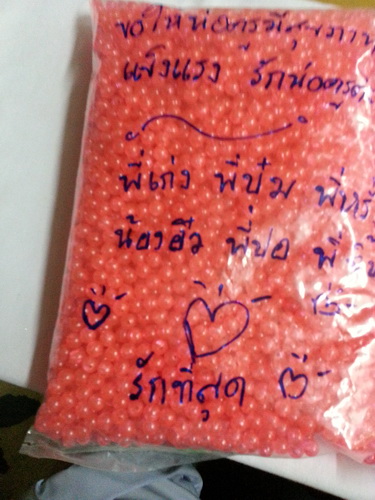 ขอให้พ่อครูมีสุขภาพ
แข็งแรง รักพ่อครู
พี่เก่ง พี่ปุ๋ม
น้องฮิว พี่ปอ
รักที่สุด